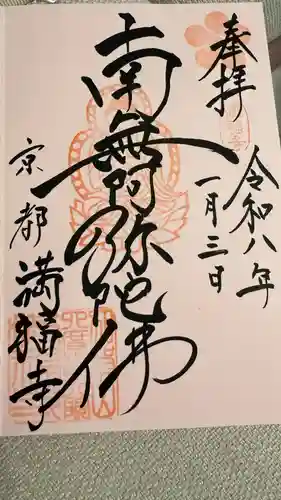 奉拝
令和八年
一月三日
南無阿弥陀佛
京都 満福寺